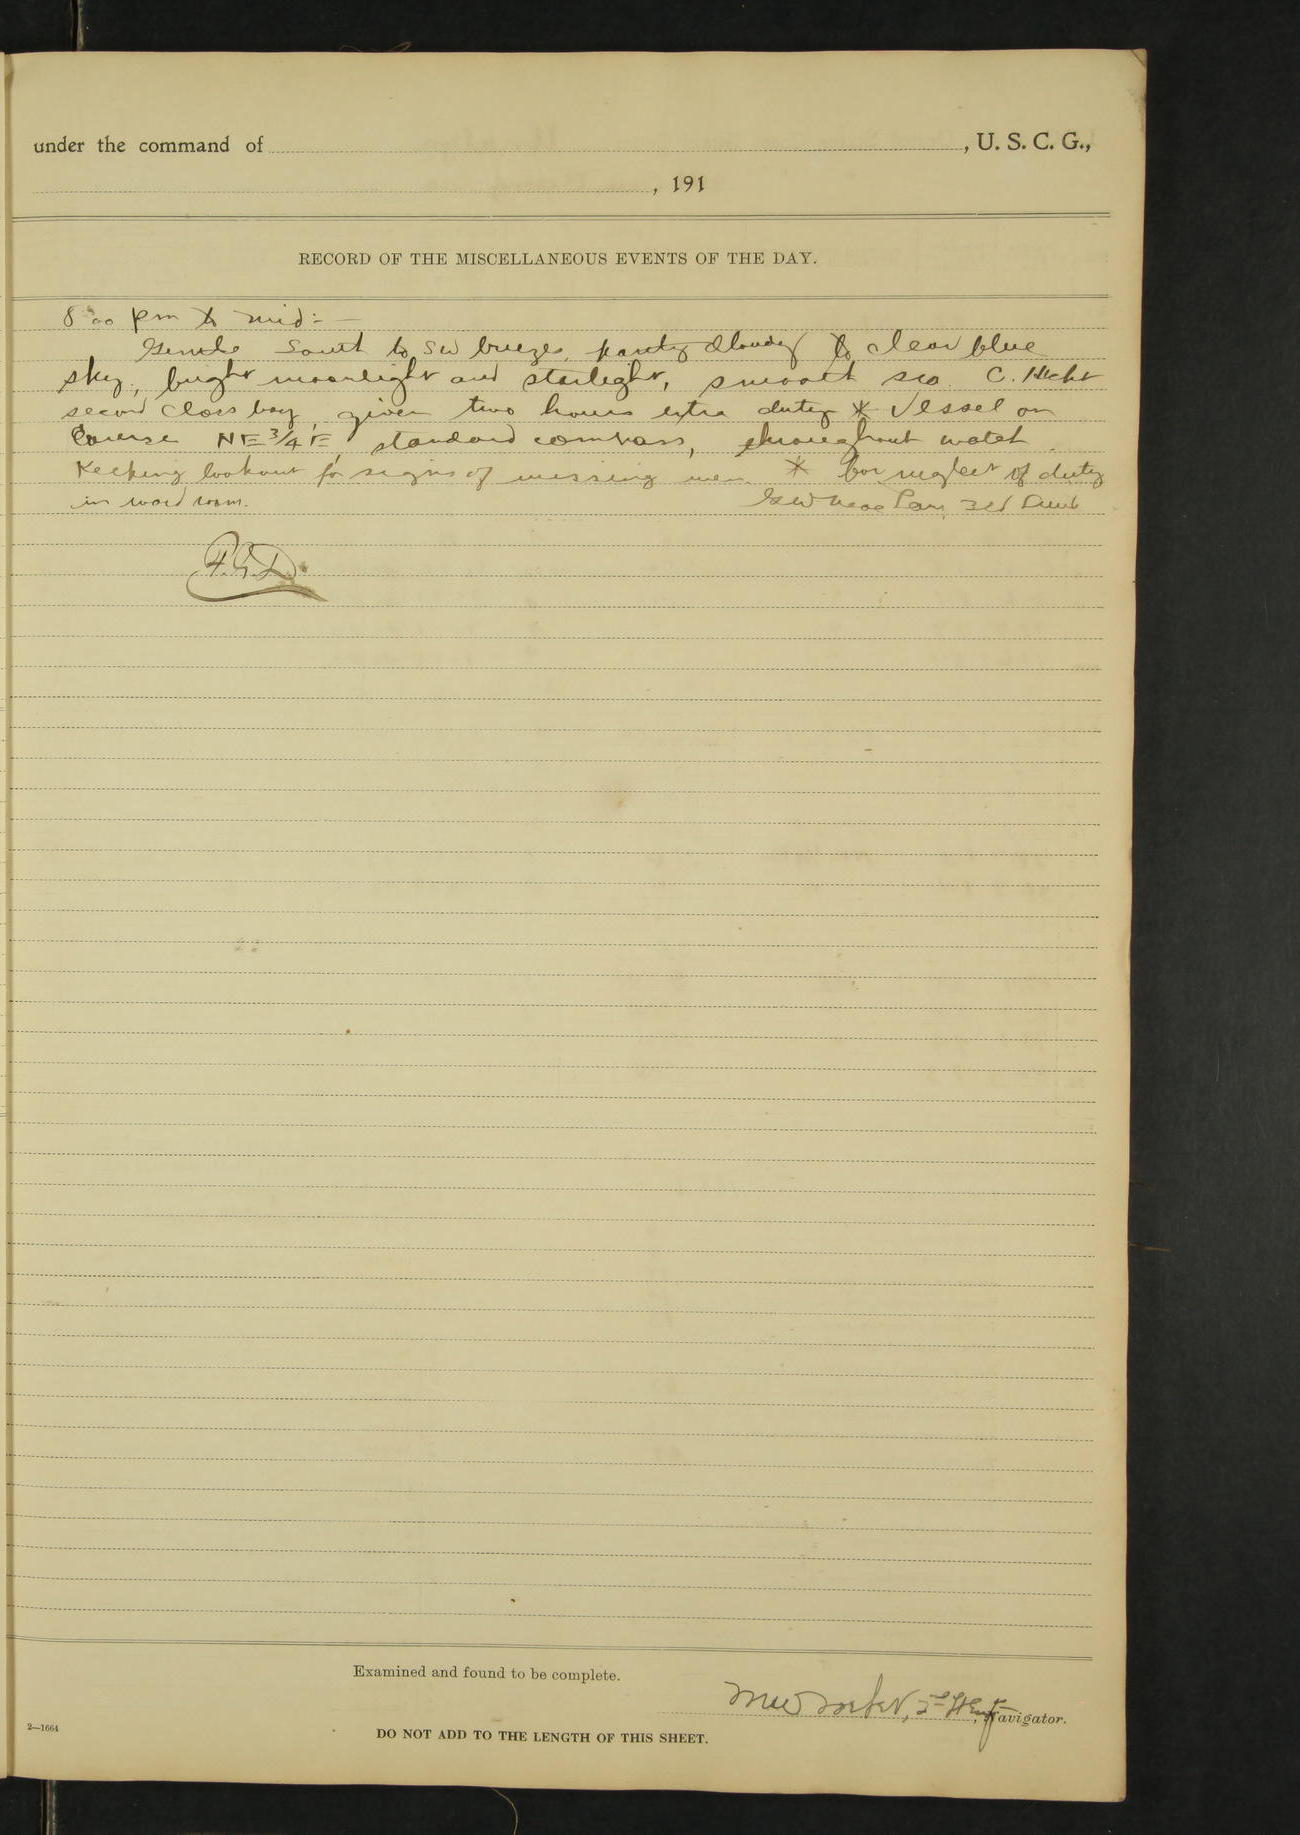 under the command of , U. S. C. G.,
, 191
RECORD OF THE MISCELLANEOUS EVENTS OF THE DAY.
8 00 pm to mid:-
Gentle South to SW breeze, partly cloudy to clear blue
sky, bright moonlight and starlight, smooth sea. C.
second class boy, given two hours extra duty * Vessel on
Course NE 3/4 E standard compass, throughout watch.
Keeping lookout for signs of missing men. * for neglect of duty
in ward room.
3rd Lieut
Examined and found to be complete.
, Navigator.
2—1664
DO NOT ADD TO THE LENGTH OF THIS SHEET.